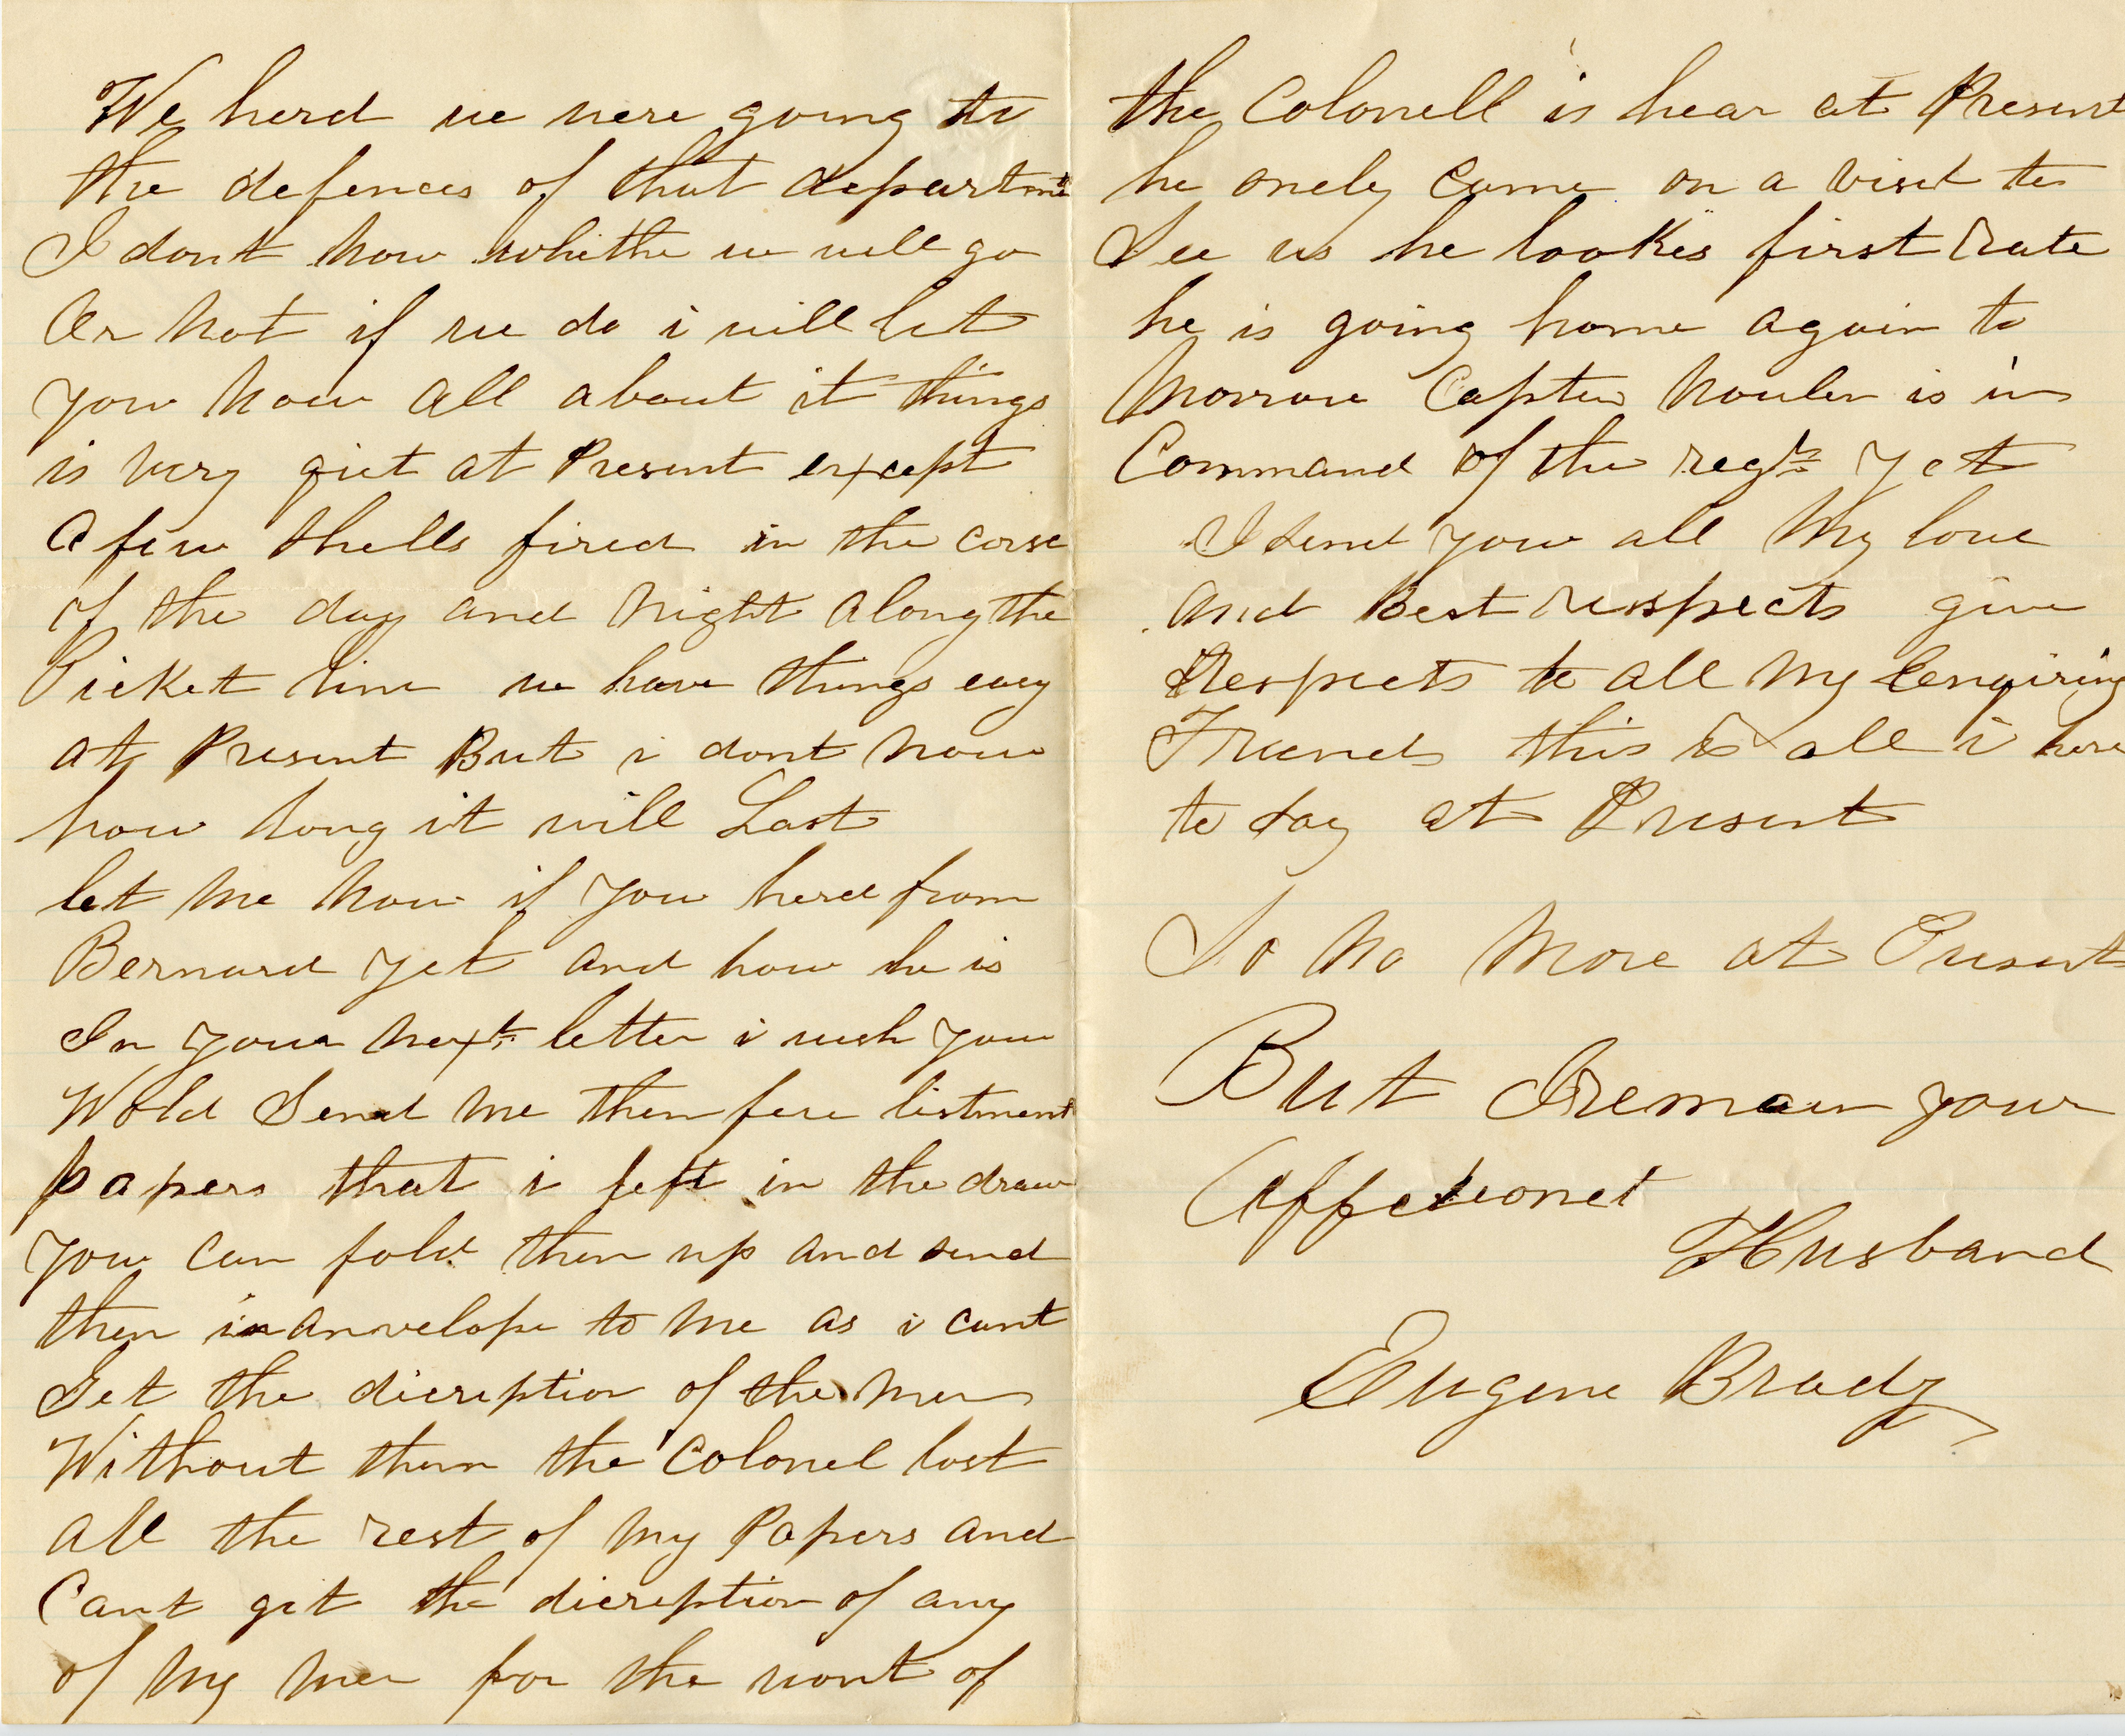 We herd we were going to
the defences of that departmt
I dont now whithe we will go
Or not if we do i will let
you now all about it things
is very qiet at Present except
a few shells fired in the corse
of the day and Night along the
Picket line we have things easy
at Present But i dont now
how long it will Last
let me now if you herd from
Bernard yet and how he is
In your next letter i wish you
Wold Send me them few listment
papers that i left in the draw
you can fold them up and send
them in anvelope to me as i cant
Get the dicreption of the men
Without them the Colonel lost
all the rest of my Papers and
Cant get the dicreption of any
of my men for the wont of
the Colonell is hear at Present
he onely came on a visit to
See us he lookes first rate
he is going home again to
Morrow Capten Nowlen is in
Command of the regt yet
I Send you all My love
And Best respects give
Respects to all my Enqiring
Friends this is all i have
to Say at Present
So No More at Present
But I remain your
Affectionet
Husband
Eugene Brady